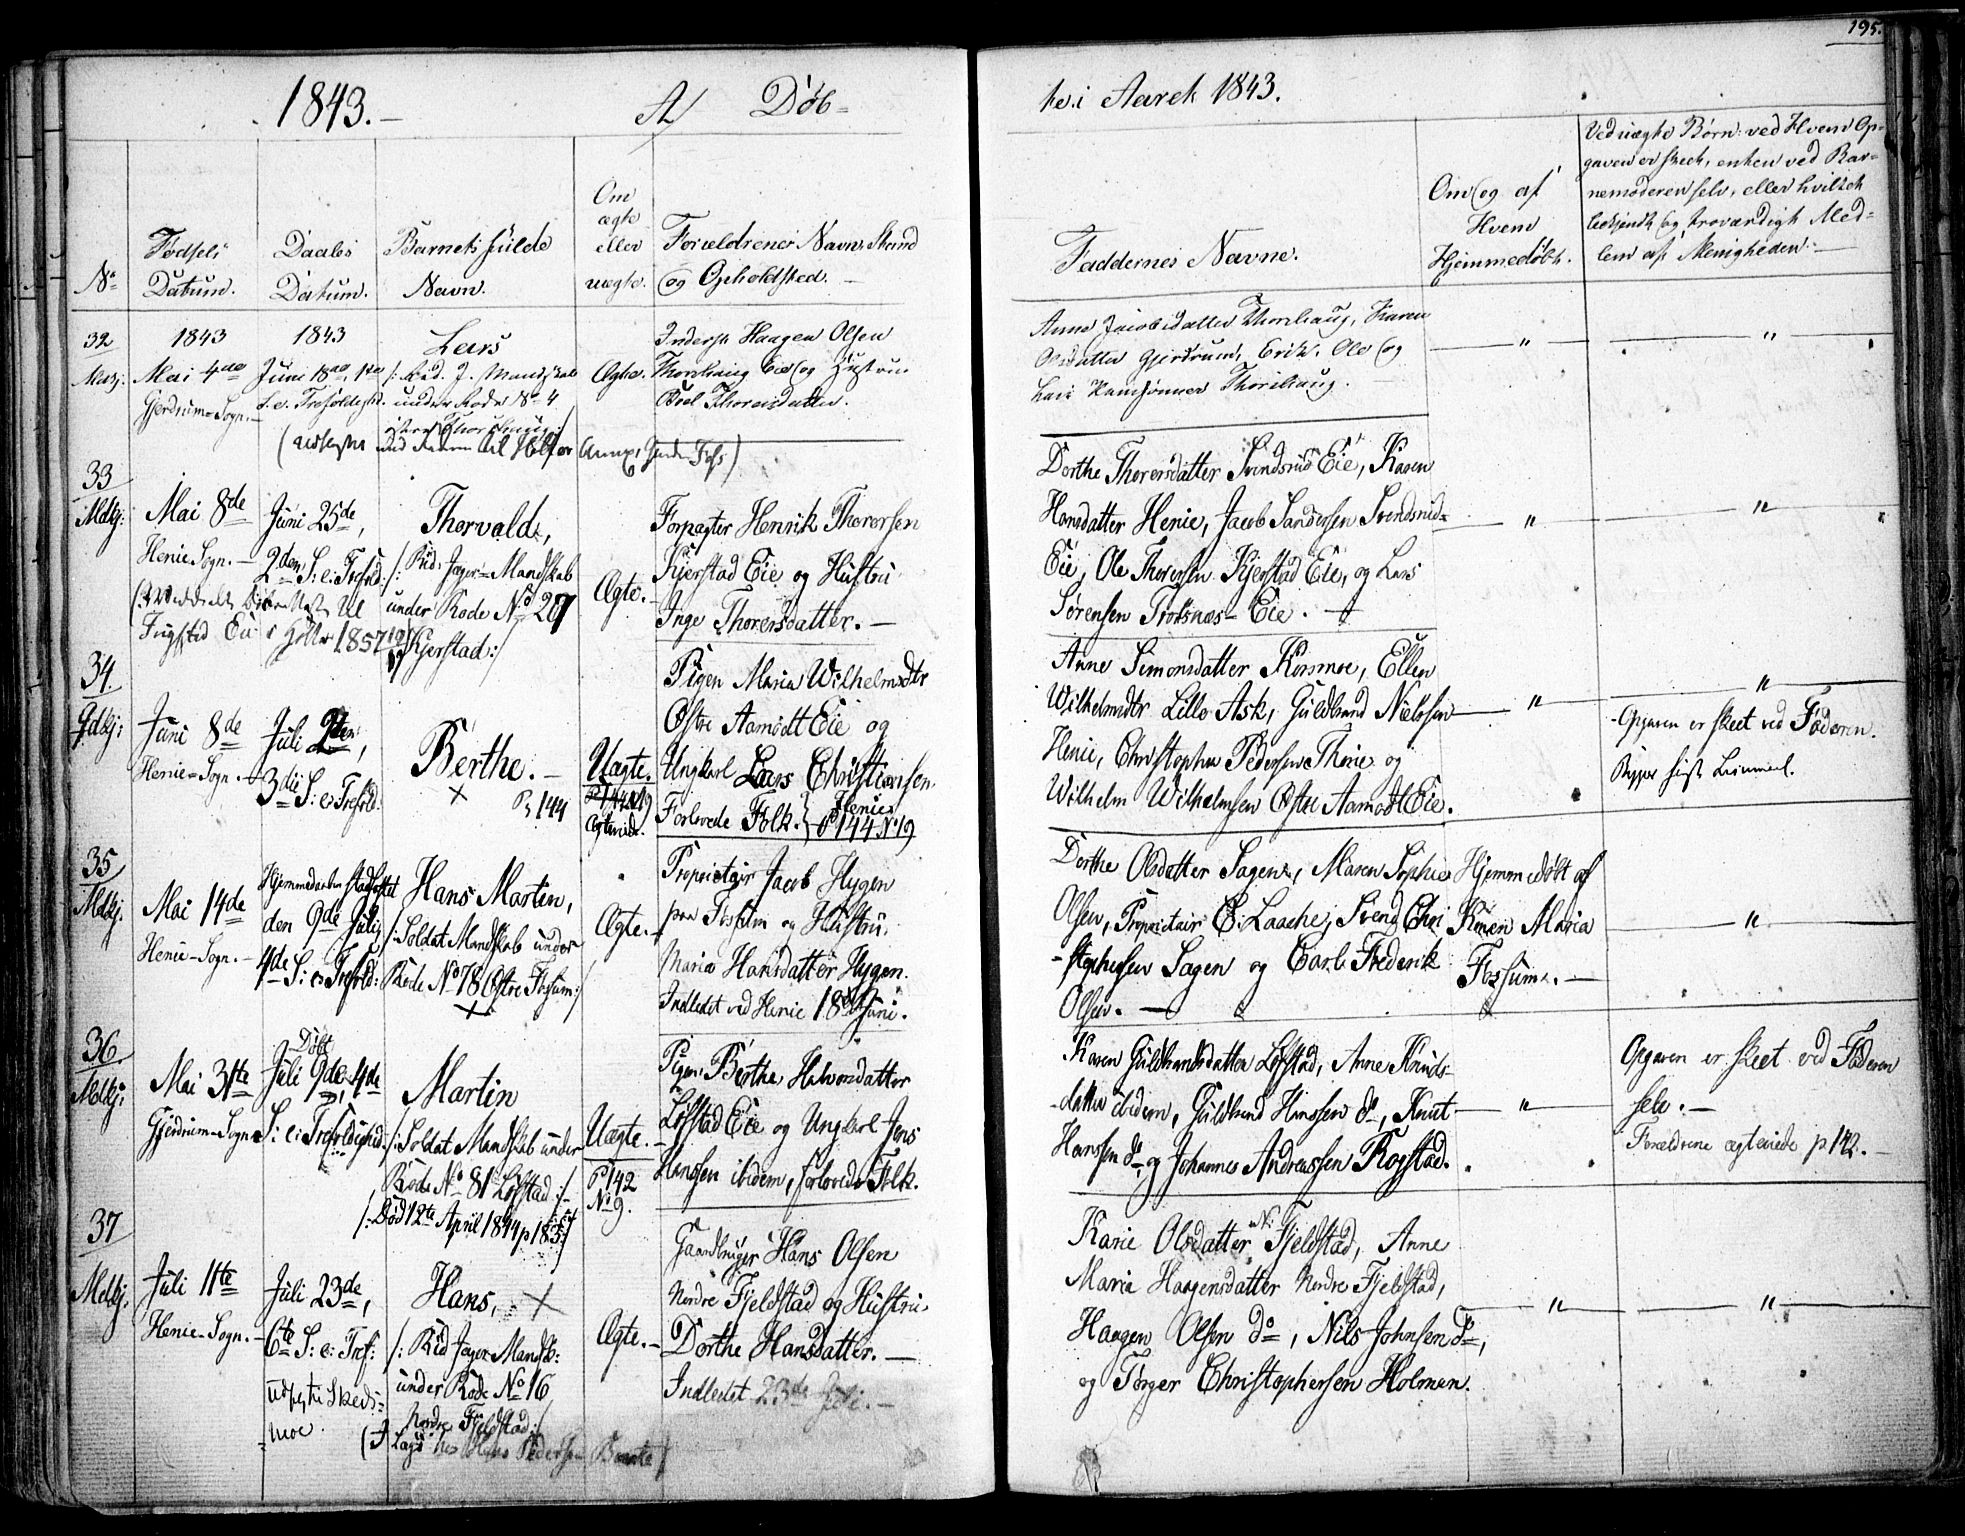 195.
1843.
A/
Døb=
te i Aaret 1843.
No
Fødsels Datum.
Daabs Datum.
Barnets fulde Navn.
Om ægte eller uægte.
Forældrenes Navn, Stand
og Opholdsted.
Faddernes Navne.
Om og af Hvem Hjemmedøbt.
Ved uægte Børn: ved Hvem Op-
gaven er skeet, enten ved Bar=
nemoderen selv, eller hvilket
bekjendt og troværdigt Med=
lem af Menigheden.
32
1843
Mai 4de
Gjerdrum Sogn.
1843
Juni 18de,
S. e. Trefoldighed.
Lars
under Rode No 4
Thorshaug
Ægte.
Inderst Haagen Olsen
Thorshaug Eie og Hustru
Boel Thorersdatter.
Anne Jacobsdatter Thorshaug, Karen
Olsdatter Gjerdrum, Erik, Ole og
Lars Hansønner Thorshaug.
"
"
33
Mdkj:
Mai 8de
Henie Sogn.
Juni 25de,
2den S: e: Trefold:
til
Eie 1857
Thorvald,
/: Rid: Jæger-Mandskab
under Rode No 27
Kjerstad:/
Ægte.
Forpagter Henrik Thorersen
Kjerstad Eie og Hustru
Inge Thorersdatter.
Dorthe Thorersdatter Svendsrud Eie, Karen
Hansdatter Henie, Jacob Sandersen Svendsrud=
Eie, Ole Thorersen Kjerstad Eie, og Lars
Sørensen Eie.
"
"
34.
Qdkj:
Juni 8de
Henie-Sogn.
Juli 2den,
3die S: e: Trefold:
Berthe.
P, 144
Uægte.
Pigen Maria Wilhelmsdtr
Østre Aamodt Eie og
Ungkarl Lars Christiansen
Forlovede Folk. Henie
P 144 No 19
Anne Simonsdatter Kosmoe, Ellen
Wilhelmsdtr Lille Ask, Guldbrand Nielssen
Henie, Christopher Pedersen Thoni og
Wilhelm Wilhelmsen Østre Aamodt Eie.
"
"
Opgaven er skeet ved Faderen.
35
Mdkj.
Mai 14de
Henie-Sogn.
Hjemmedaaben stadfæstet
den 9de Juli,
4de S: e: Trefold:
Hans Martin,
/: Soldat Mandskab under
Rode No 78 Østre Fossum:/
Ægte.
Proprietair Jacob Hygen
paa Fossum og Hustru
Maria Hansdatter Hygen.
Indledet ved Henie 18de Juni.
Dorthe Olsdatter Sagen, Maren Sophie
Olsen, Proprietair E: Laache, Svend Chri
-stophersen Sagen og Carl Frederik
Olsen.
Hjemmedøbt af
Karen Maria
Fossum.
"
36.
Mdkj:
Mai 31te
Gjerdrum-Sogn
Døbt
Juli 9de, 4de
S: e: Trefoldighed.
Martin
/: Soldat Mandskab under
Rode No 81 Løfstad:/
/: Død 12te April 1844
Uægte.
P 142
No 9.
Pigen Berthe Halvorsdatter
Løfstad Eie og Ungkarl Jens
Hanssen ibidem, forlovede Folk.
Karen Guldbrandsdatter Løfstad, Anne Knuds-
datter ibidem, Guldbrand Hanssen do, Knut
Hanssen do og Johannes Andreassen Rogstad.
"
Opgaven er skeet ved Faderen
selv.
Forældrene ægteviede p 142.
37
Mdkj.
Juli 11te
Henie-Sogn.
Juli 23de,
6te S: e: Tref:
Skeds=
moe.
Hans,
/: Rid Jæger Mandsk:
under Rode No 16
Nordre Fjeldstad:/
Hans Pedersen
Ægte.
Gaardbruger Hans Olsen
Nordre Fjeldstad og Hustru
Dorthe Hansdatter.
Indledet 23de Juli.
Karie Olsdatter N: Fjeldstad, Anne
Maria Haagensdatter Nordre Fjeldstad,
Haagen Olsen do, Nils Johnsen do,
og Torger Christophersen Holmen.
"
"